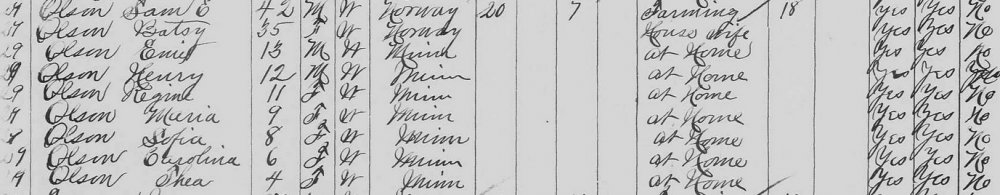 Olson Sam E 42 M W Norway 20 7 Farming 18 Yes Yes No
Olson Batsy 35 F W Norway House Wife Yes Yes No
29 Olson Emil 13 M W Minn at Home Yes Yes No
Olson Henry 12 M W Minn at Home Yes Yes
29 Olson Regine 11 F W Minn at Home Yes Yes No
Olson Maria 9 F W Minn at Home Yes Yes No
Olson Sofia 8 F W Minn at Home Yes Yes No
Olson Carolina 6 F W Minn at Home Yes Yes No
Olson Thea 4 F W Minn at Home Yes Yes No